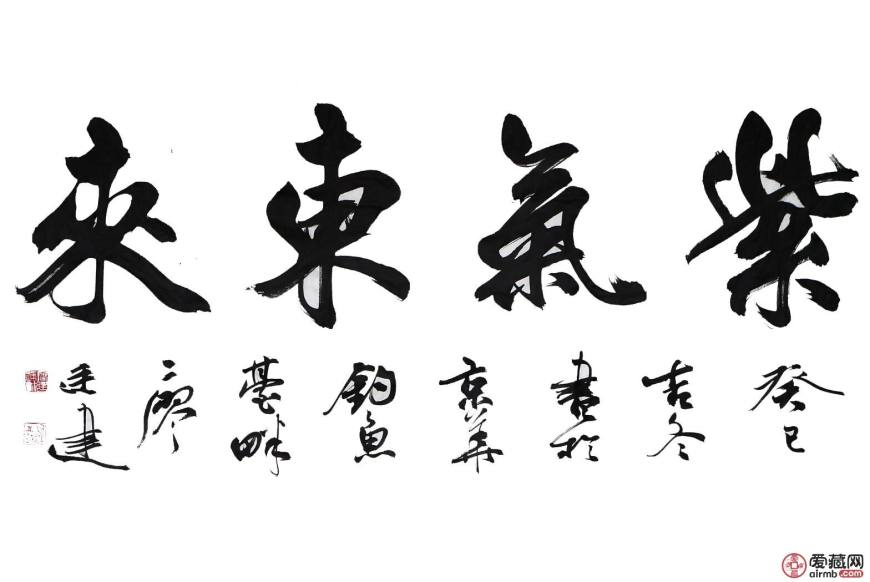 紫氣東來
癸巳
吉冬
書於
京華
釣魚
臺畔
廖
建
爱藏网
airmb.com